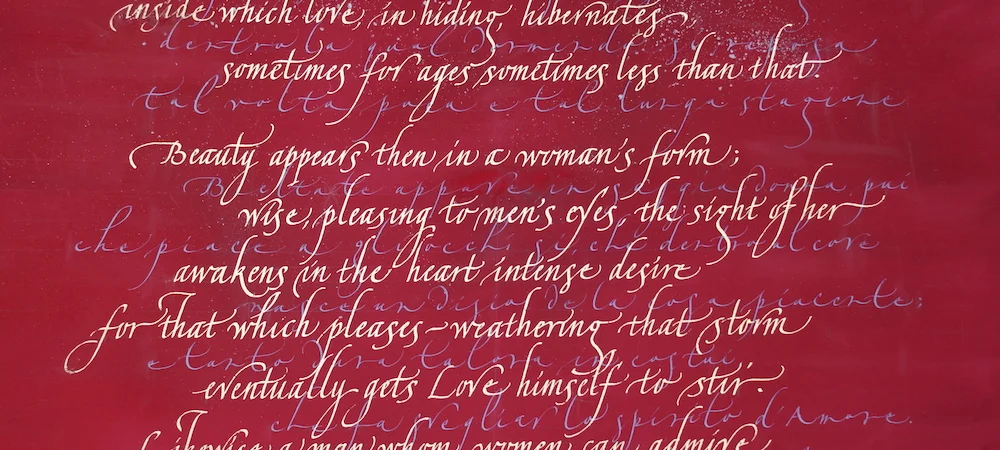 inside which love, in hiding hibernates,
dentro la qual dormendo si riposa
sometimes for ages sometimes less than that.
tal volta poca e tal lunga stagione
Beauty appears then in a woman's form;
Bieltate appare in saggia donna pui
wise, pleasing to men's eyes, the sight of her
che piace a gli occhi sì che dentro al core
awakens in the heart intense desire
nasce un disio de la cosa piacente;
for that which pleases – weathering that storm
e tanto dura talora in costui
eventually gets Love himself to stir.
che fa svegliar lo spirito d'Amore.
Likewise a man whom women can admire